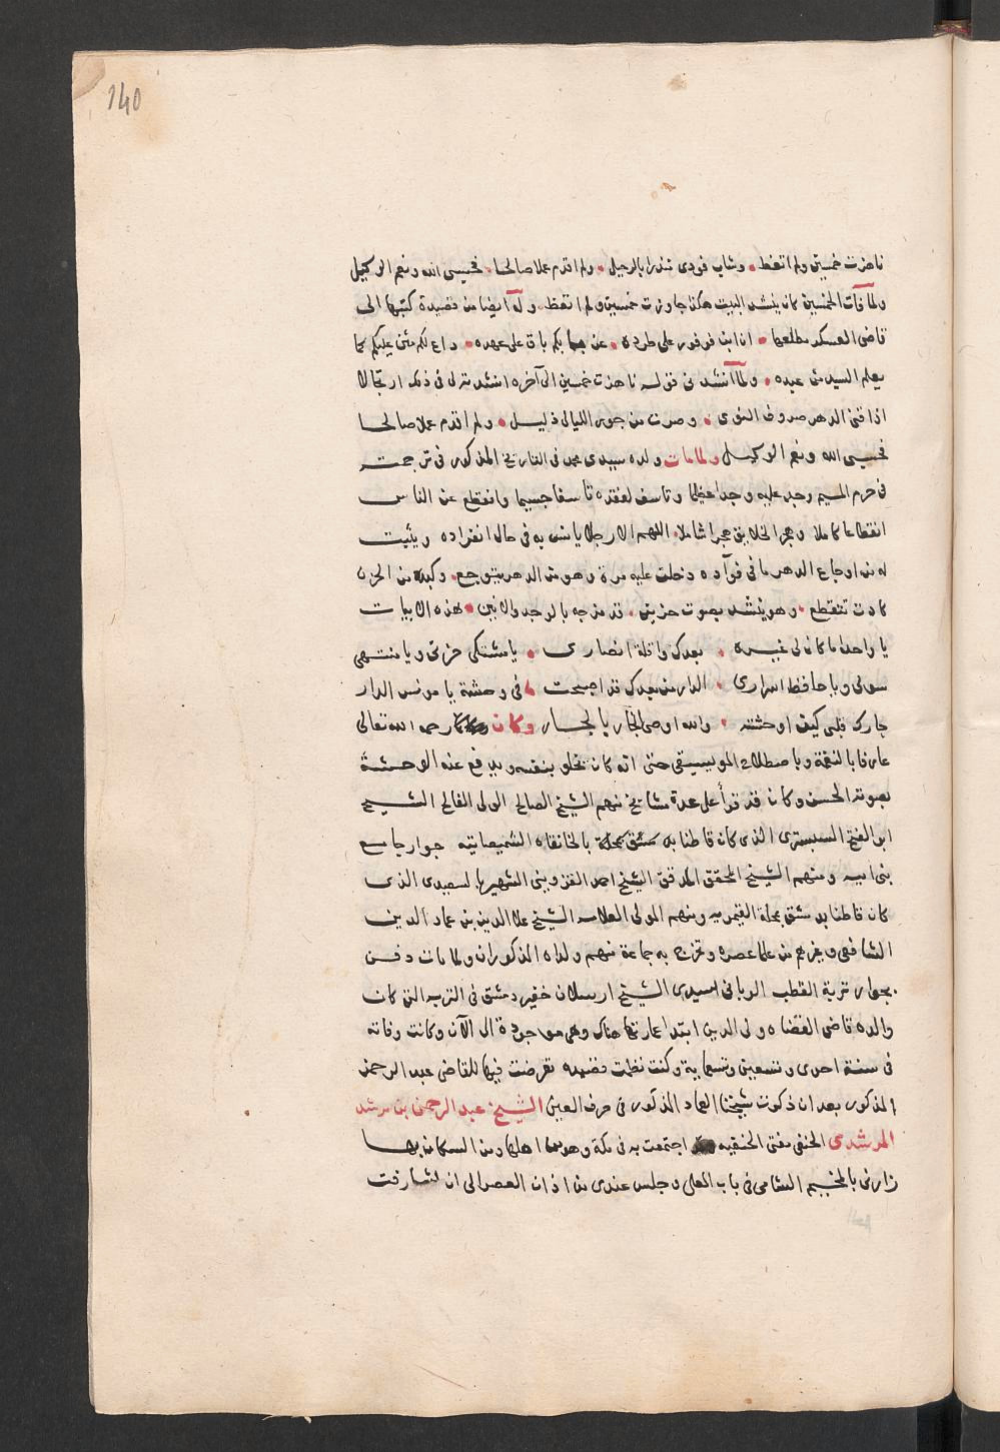 140
ناهزت خمسين ولم اتعظ • وشاب فودى منذرا بالرحيل • ولم اقدم عملا صالحا • فحسبى الله ونعم الوكيل
ولما فات الخمسين كان ينشد البيت هكذا جاوزت خمسين ولم اتعظ وله ايضا من قصيدة كتبها الى
قاضى العسكر مطلعها • ان ابن فرفور على طرده • عن بابكم باق على عهده • داع لكم مثن عليكم كما
يعلم السيد من عبده • ولما انشد من قوله ناهزت خمسين الى آخره انشد نزلى فى ذلك ارتجالا
اذاقنى الدهر صروف النوى • وصرت من جور الليالى ذليل • ولم اقدم عملا صالحا
فحسبى الله ونعم الوكيل ولما مات ولده سيدى محمد فى التاريخ المذكور فى ترجمته
فى حرم الميم وجد عليه وجدا عظيما وتاسف لفقده تاسفا جسيما وانقطع عن الناس
انقطاعا كاملا وهجر الخلايق هجرا شاملا • اللهم الا رجلا يانس به فى حال انفراده ويثبت
له من اوجاع الدهر ما فى فوآده دخلت عليه مرة وهو من الدهر يتوجع • وكبده من الحزن
كادت تتقطع • وهو ينشد بصوت حزين • قد مزجه بالوجد والانين • هذه الابيات
يا واحدا ما كان لى غيره • بعدك واقلة انصارى • يا مشتكى حزنى ويا منتهى
سولى ويا حافظ اسرارى • الدار من بعدك قد اصبحت • فى وحشة يا مونس الدار
جارك قلبى كيف اوحشته • والله اوصى الجار بالجار وكان رحمه الله تعالى
عارفا بالنغمة وباصطلاح الموسيقى حتى انه كان يخلو بنفسه ويدفع عنه الوحشة
بصوته الحسن وكان قد قرأ على عدة مشايخ منهم الشيخ الصالح الولى الفالح الشيخ
ابو الفتح السبسترى الذى كان قاطنا بدمشق بمحلة بالخانقاه الشميصاتيه جوار جامع
بنى اميه ومنهم الشيخ المحقق المدقق الشيخ احمد القزوينى الشهير بالسعيدى الذى
كان قاطنا بدمشق بمحلة القيمريه ومنهم المولى العلامه الشيخ علا الدين بن عماد الدين
الشافعى وغيرهم من علما عصره وتخرج به جماعة منهم ولداه المذكوران ولما مات دفن
بجوار تربة القطب الربانى سيدى الشيخ ارسلان خفير دمشق فى التربه التى كان
والده قاضى القضاه ولى الدين ابتدا عمارتها هناك وهى موجودة الى الآن وكانت وفاته
فى سنة احدى وتسعين وتسعماية وكنت نظمت قصيده تعرضت فيها للقاضى عبد الرحمن
المذكور بعد ان ذكرت شيخنا العماد المذكور فى حرف العين الشيخ عبد الرحمن بن مرشد
المرشدى الحنفى مفتى الحنفيه اجتمعت به فى مكة وهو من اهلها ومن السكان بها
زارنى بالمخيم الشامى فى باب المعلى وجلس عندى من اذان العصر الى ان شارفت